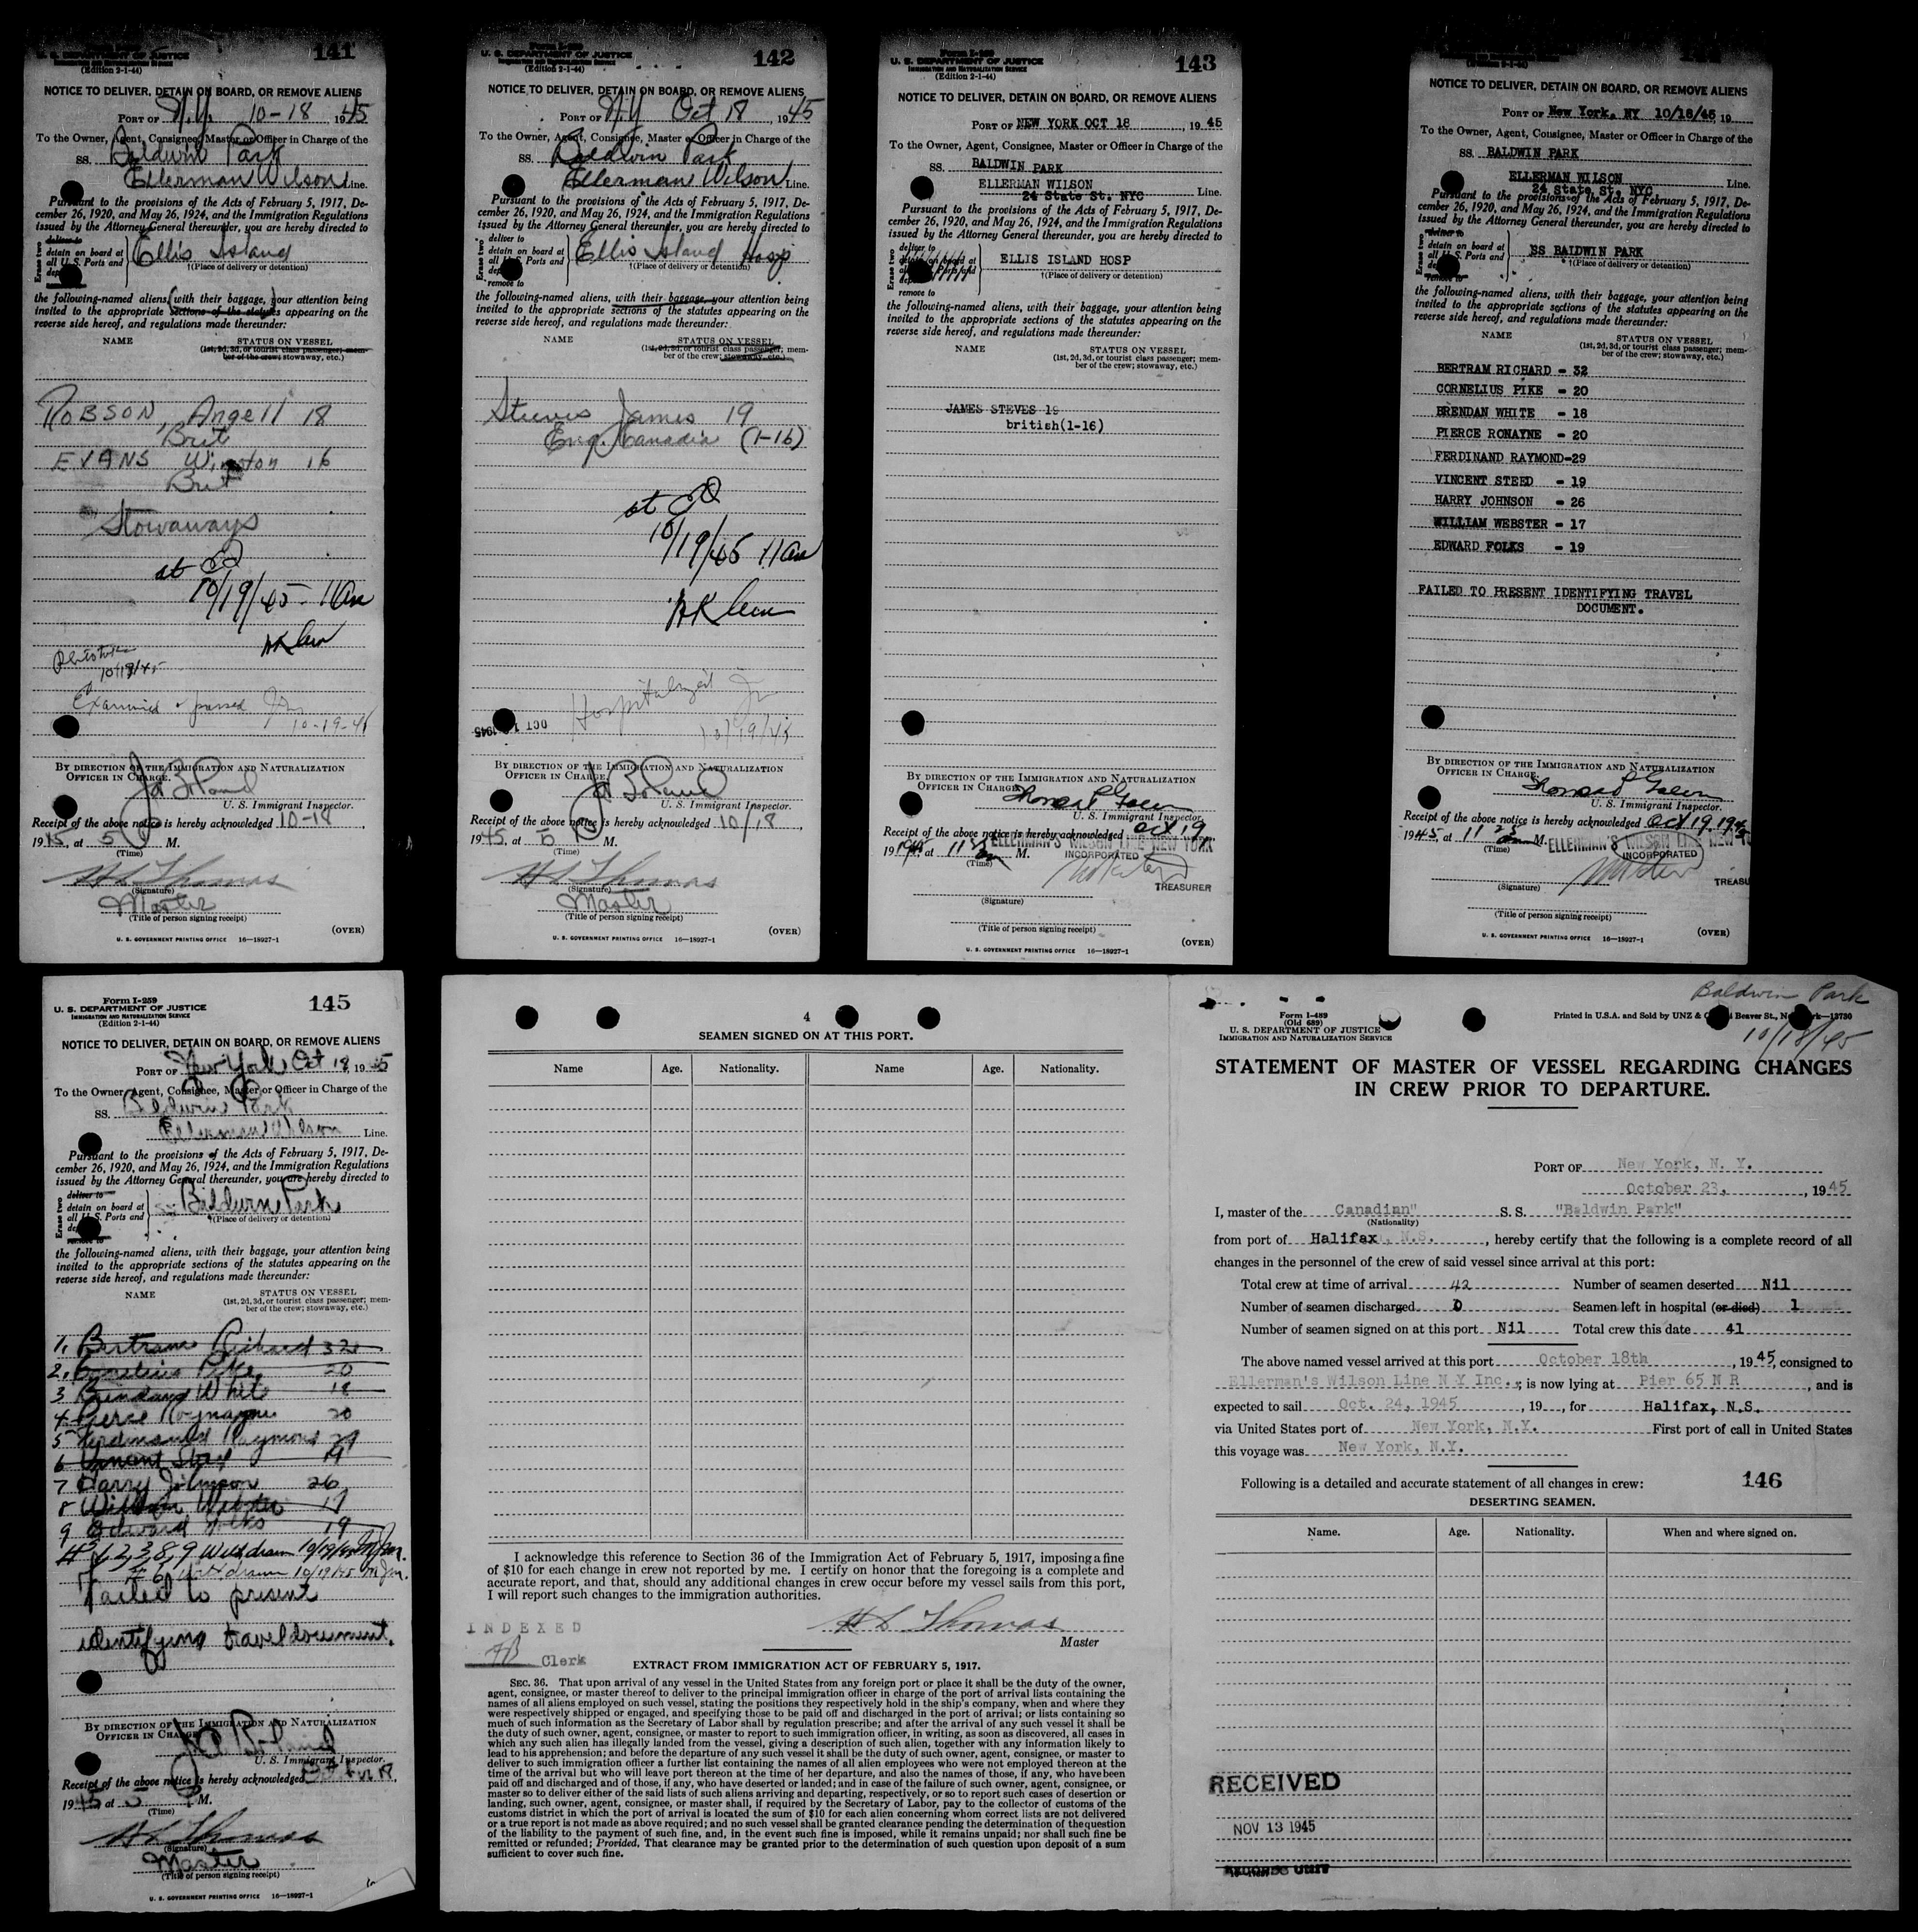 141
U. S. DEPARTMENT OF JUSTICE
IMMIGRATION AND NATURALIZATION SERVICE
(Edition 2-1-44)
NOTICE TO DELIVER, DETAIN ON BOARD, OR REMOVE ALIENS
PORT OF N.Y. 10-18 1945
To the Owner, Agent, Consignee, Master or Officer in Charge of the
SS. Baldwin Park
Ellerman Wilson Line.
Pursuant to the provisions of the Acts of February 5, 1917, De-
cember 26, 1920, and May 26, 1924, and the Immigration Regulations
issued by the Attorney General thereunder, you are hereby directed to
Erase two
deliver to
detain on board at
all U. S. Ports and
Ellis Island
†(Place of delivery or detention)
the following-named aliens, (with their baggage,) your attention being
invited to the appropriate sections of the statutes appearing on the
reverse side hereof, and regulations made thereunder:
NAME STATUS ON VESSEL
(1st, 2d, 3d, or tourist class passenger; mem-
ber of the crew; stowaway, etc.)
ROBSON, Angell 18
Brit
EVANS Winston 16
Brit
Stowaways
at
10/19/45 - 11am
10/19/45
Examined & passed
10-19-45
BY DIRECTION OF THE IMMIGRATION AND NATURALIZATION
OFFICER IN CHARGE.
U. S. Immigrant Inspector.
Receipt of the above notice is hereby acknowledged 10-18
1945, at 5 P M.
(Time)
H L Thomas
(Signature)
Master
(Title of person signing receipt)
(OVER)
U. S. GOVERNMENT PRINTING OFFICE 16—18927-1
Form I-259
142
U. S. DEPARTMENT OF JUSTICE
IMMIGRATION AND NATURALIZATION SERVICE
(Edition 2-1-44)
NOTICE TO DELIVER, DETAIN ON BOARD, OR REMOVE ALIENS
PORT OF N.Y Oct 18, 1945
To the Owner, Agent, Consignee, Master or Officer in Charge of the
SS. Baldwin Park
Ellerman Wilson Line.
Pursuant to the provisions of the Acts of February 5, 1917, De-
cember 26, 1920, and May 26, 1924, and the Immigration Regulations
issued by the Attorney General thereunder, you are hereby directed to
Erase two
deliver to
detain on board at
all U. S. Ports and
remove to
Ellis Island Hosp
†(Place of delivery or detention)
the following-named aliens, with their baggage, your attention being
invited to the appropriate sections of the statutes appearing on the
reverse side hereof, and regulations made thereunder:
NAME STATUS ON VESSEL
(1st, 2d, 3d, or tourist class passenger; mem-
ber of the crew; stowaway, etc.)
Steeves James 19
Eng. Canadia (1-16)
at
10/19/45 11am
Hospitalized
10/19/45
OCT 1945
BY DIRECTION OF THE IMMIGRATION AND NATURALIZATION
OFFICER IN CHARGE.
U. S. Immigrant Inspector.
Receipt of the above notice is hereby acknowledged 10/18,
1945, at 5 P M.
(Time)
H L Thomas
(Signature)
Master
(Title of person signing receipt)
(OVER)
U. S. GOVERNMENT PRINTING OFFICE 16—18927-1
Form I-259
143
U. S. DEPARTMENT OF JUSTICE
IMMIGRATION AND NATURALIZATION SERVICE
(Edition 2-1-44)
NOTICE TO DELIVER, DETAIN ON BOARD, OR REMOVE ALIENS
PORT OF NEW YORK OCT 18, 1945
To the Owner, Agent, Consignee, Master or Officer in Charge of the
SS. BALDWIN PARK
ELLERMAN WILSON
24 State St. NYC Line.
Pursuant to the provisions of the Acts of February 5, 1917, De-
cember 26, 1920, and May 26, 1924, and the Immigration Regulations
issued by the Attorney General thereunder, you are hereby directed to
Erase two
deliver to
detain on board at
remove to
ELLIS ISLAND HOSP
†(Place of delivery or detention)
the following-named aliens, with their baggage, your attention being
invited to the appropriate sections of the statutes appearing on the
reverse side hereof, and regulations made thereunder:
NAME STATUS ON VESSEL
(1st, 2d, 3d, or tourist class passenger; mem-
ber of the crew; stowaway, etc.)
JAMES STEVES 19
british(1-16)
BY DIRECTION OF THE IMMIGRATION AND NATURALIZATION
OFFICER IN CHARGE
U. S. Immigrant Inspector.
Receipt of the above notice is hereby acknowledged Oct 19,
1945 at 11 M.
(Time)
ELLERMAN'S WILSON LINE NEW YORK
INCORPORATED
TREASURER
(Signature)
(Title of person signing receipt)
(OVER)
U. S. GOVERNMENT PRINTING OFFICE 16—18927-1
NOTICE TO DELIVER, DETAIN ON BOARD, OR REMOVE ALIENS
PORT OF New York, NY 10/18/45 19
To the Owner, Agent, Consignee, Master or Officer in Charge of the
SS. BALDWIN PARK
ELLERMAN WILSON
24 State St. NYC Line.
Pursuant to the provisions of the Acts of February 5, 1917, De-
cember 26, 1920, and May 26, 1924, and the Immigration Regulations
issued by the Attorney General thereunder, you are hereby directed to
Erase two
deliver to
detain on board at
all U. S. Ports and
remove to
SS BALDWIN PARK
†(Place of delivery or detention)
the following-named aliens, with their baggage, your attention being
invited to the appropriate sections of the statutes appearing on the
reverse side hereof, and regulations made thereunder:
NAME STATUS ON VESSEL
(1st, 2d, 3d, or tourist class passenger; mem-
ber of the crew; stowaway, etc.)
BERTRAM RICHARD - 32
CORNELIUS PIKE - 20
BRENDAN WHITE - 18
PIERCE RONAYNE - 20
FERDINAND RAYMOND-29
VINCENT STEED - 19
HARRY JOHNSON - 26
WILLIAM WEBSTER - 17
EDWARD FOLKS - 19
FAILED TO PRESENT IDENTIFYING TRAVEL
DOCUMENT.
BY DIRECTION OF THE IMMIGRATION AND NATURALIZATION
OFFICER IN CHARGE
U. S. Immigrant Inspector.
Receipt of the above notice is hereby acknowledged Oct 19, 1945
1945, at 11 25 M.
(Time)
ELLERMAN'S WILSON LINE NEW YO
INCORPORATED
TREASU
(Signature)
(Title of person signing receipt)
(OVER)
U. S. GOVERNMENT PRINTING OFFICE 16—18927-1
Form I-259
145
U. S. DEPARTMENT OF JUSTICE
IMMIGRATION AND NATURALIZATION SERVICE
(Edition 2-1-44)
NOTICE TO DELIVER, DETAIN ON BOARD, OR REMOVE ALIENS
PORT OF New York Oct 18 1945
To the Owner, Agent, Consignee, Master or Officer in Charge of the
SS. Baldwin Park
Ellerman Wilson Line.
Pursuant to the provisions of the Acts of February 5, 1917, De-
cember 26, 1920, and May 26, 1924, and the Immigration Regulations
issued by the Attorney General thereunder, you are hereby directed to
Erase two
deliver to
detain on board at
all U. S. Ports and
SS Baldwin Park
†(Place of delivery or detention)
the following-named aliens, with their baggage, your attention being
invited to the appropriate sections of the statutes appearing on the
reverse side hereof, and regulations made thereunder:
NAME STATUS ON VESSEL
(1st, 2d, 3d, or tourist class passenger; mem-
ber of the crew; stowaway, etc.)
1. Bertram Richard 32
2. Cornelius Pike 20
3 Brendan White 18
4. Pierce Roynayne 20
5 Ferdinand Raymond 29
6 Vincent Steed 19
7 Harry Johnson 26
8 William Webster 17
9 Edward Folks 19
# 1,2,3,8,9 Withdrawn 10/19/45
# 6 withdrawn 10/19/45
Failed to present
identifying travel document.
BY DIRECTION OF THE IMMIGRATION AND NATURALIZATION
OFFICER IN CHARGE
U. S. Immigrant Inspector.
Receipt of the above notice is hereby acknowledged
1945 at 5 P M.
(Time)
H L Thomas
(Signature)
Master
(Title of person signing receipt)
U. S. GOVERNMENT PRINTING OFFICE 16—18927-1
4
SEAMEN SIGNED ON AT THIS PORT.
Name Age. Nationality. Name Age. Nationality.
I acknowledge this reference to Section 36 of the Immigration Act of February 5, 1917, imposing a fine
of $10 for each change in crew not reported by me. I certify on honor that the foregoing is a complete and
accurate report, and that, should any additional changes in crew occur before my vessel sails from this port,
I will report such changes to the immigration authorities.
H L Thomas
Master
INDEXED
Clerk
EXTRACT FROM IMMIGRATION ACT OF FEBRUARY 5, 1917.
SEC. 36. That upon arrival of any vessel in the United States from any foreign port or place it shall be the duty of the owner,
agent, consignee, or master thereof to deliver to the principal immigration officer in charge of the port of arrival lists containing the
names of all aliens employed on such vessel, stating the positions they respectively hold in the ship's company, when and where they
were respectively shipped or engaged, and specifying those to be paid off and discharged in the port of arrival; or lists containing so
much of such information as the Secretary of Labor shall by regulation prescribe; and after the arrival of any such vessel it shall be
the duty of such owner, agent, consignee, or master to report to such immigration officer, in writing, as soon as discovered, all cases in
which any such alien has illegally landed from the vessel, giving a description of such alien, together with any information likely to
lead to his apprehension; and before the departure of any such vessel it shall be the duty of such owner, agent, consignee, or master to
deliver to such immigration officer a further list containing the names of all alien employees who were not employed thereon at the
time of the arrival but who will leave port thereon at the time of her departure, and also the names of those, if any, who have been
paid off and discharged and of those, if any, who have deserted or landed; and in case of the failure of such owner, agent, consignee, or
master so to deliver either of the said lists of such aliens arriving and departing, respectively, or so to report such cases of desertion or
landing, such owner, agent, consignee, or master shall, if required by the Secretary of Labor, pay to the collector of customs of the
customs district in which the port of arrival is located the sum of $10 for each alien concerning whom correct lists are not delivered
or a true report is not made as above required; and no such vessel shall be granted clearance pending the determination of the question
of the liability to the payment of such fine, and, in the event such fine is imposed, while it remains unpaid; nor shall such fine be
remitted or refunded; Provided, That clearance may be granted prior to the determination of such question upon deposit of a sum
sufficient to cover such fine.
Baldwin Park
10/18/45
Form I-489
(Old 689)
U. S. DEPARTMENT OF JUSTICE
IMMIGRATION AND NATURALIZATION SERVICE
Printed in U.S.A. and Sold by UNZ & C Beaver St., New York—13730
STATEMENT OF MASTER OF VESSEL REGARDING CHANGES
IN CREW PRIOR TO DEPARTURE.
PORT OF New York, N. Y.
October 23, , 1945
I, master of the Canadian" S. S. "Baldwin Park"
(Nationality)
from port of Halifax, N.S. , hereby certify that the following is a complete record of all
changes in the personnel of the crew of said vessel since arrival at this port:
Total crew at time of arrival 42 Number of seamen deserted Nil
Number of seamen discharged 0 Seamen left in hospital (or died) 1
Number of seamen signed on at this port Nil Total crew this date 41
The above named vessel arrived at this port October 18th , 1945, consigned to
Ellerman's Wilson Line N Y Inc. ; is now lying at Pier 65 N R , and is
expected to sail Oct. 24, 1945 , 19 , for Halifax, N.S.
via United States port of New York, N.Y. First port of call in United States
this voyage was New York, N.Y.
Following is a detailed and accurate statement of all changes in crew: 146
DESERTING SEAMEN.
Name. Age. Nationality. When and where signed on.
RECEIVED
NOV 13 1945
RECORDS UNIT